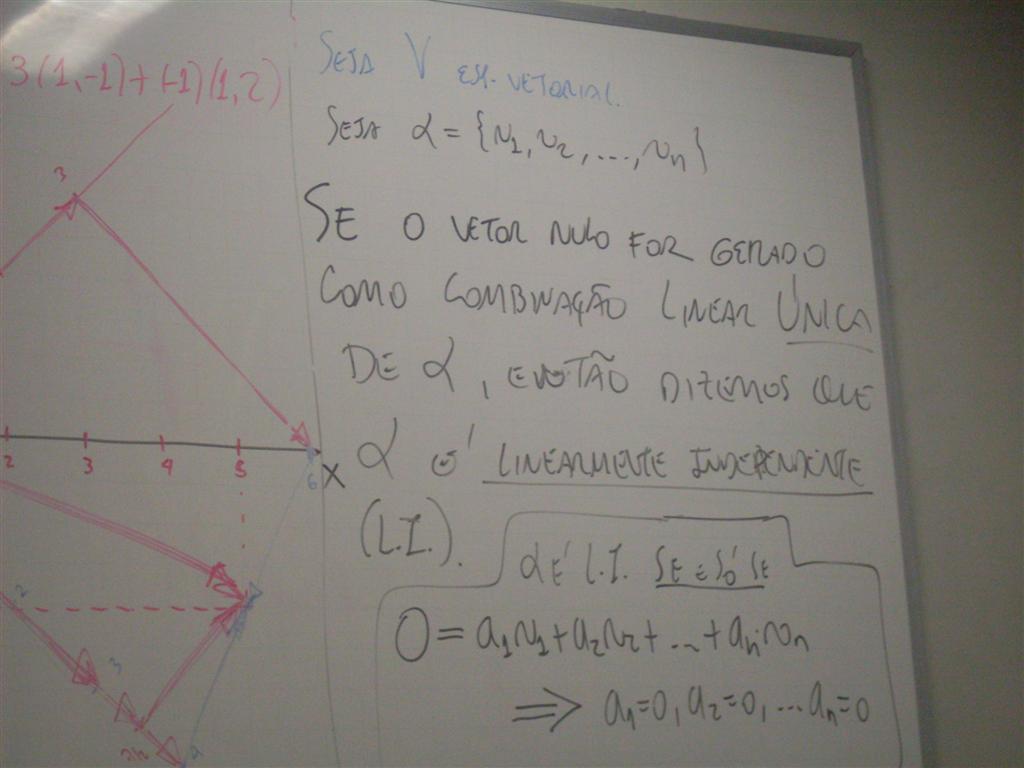 3(1,-1)+(-1)(1,2)
3
2 3 4 5 6 X
2
3
4
SEJA V ESP. VETORIAL.
SEJA α = {v1, v2, ..., vn}
SE O VETOR NULO FOR GERADO
COMO COMBINAÇÃO LINEAR ÚNICA
DE α, ENTÃO DIZEMOS QUE
α É LINEARMENTE INDEPENDENTE
(L.I.).
α É L.I. SE E SÓ SE
0 = a1v1 + a2v2 + ... + anvn
⇒ a1=0, a2=0, ... an=0